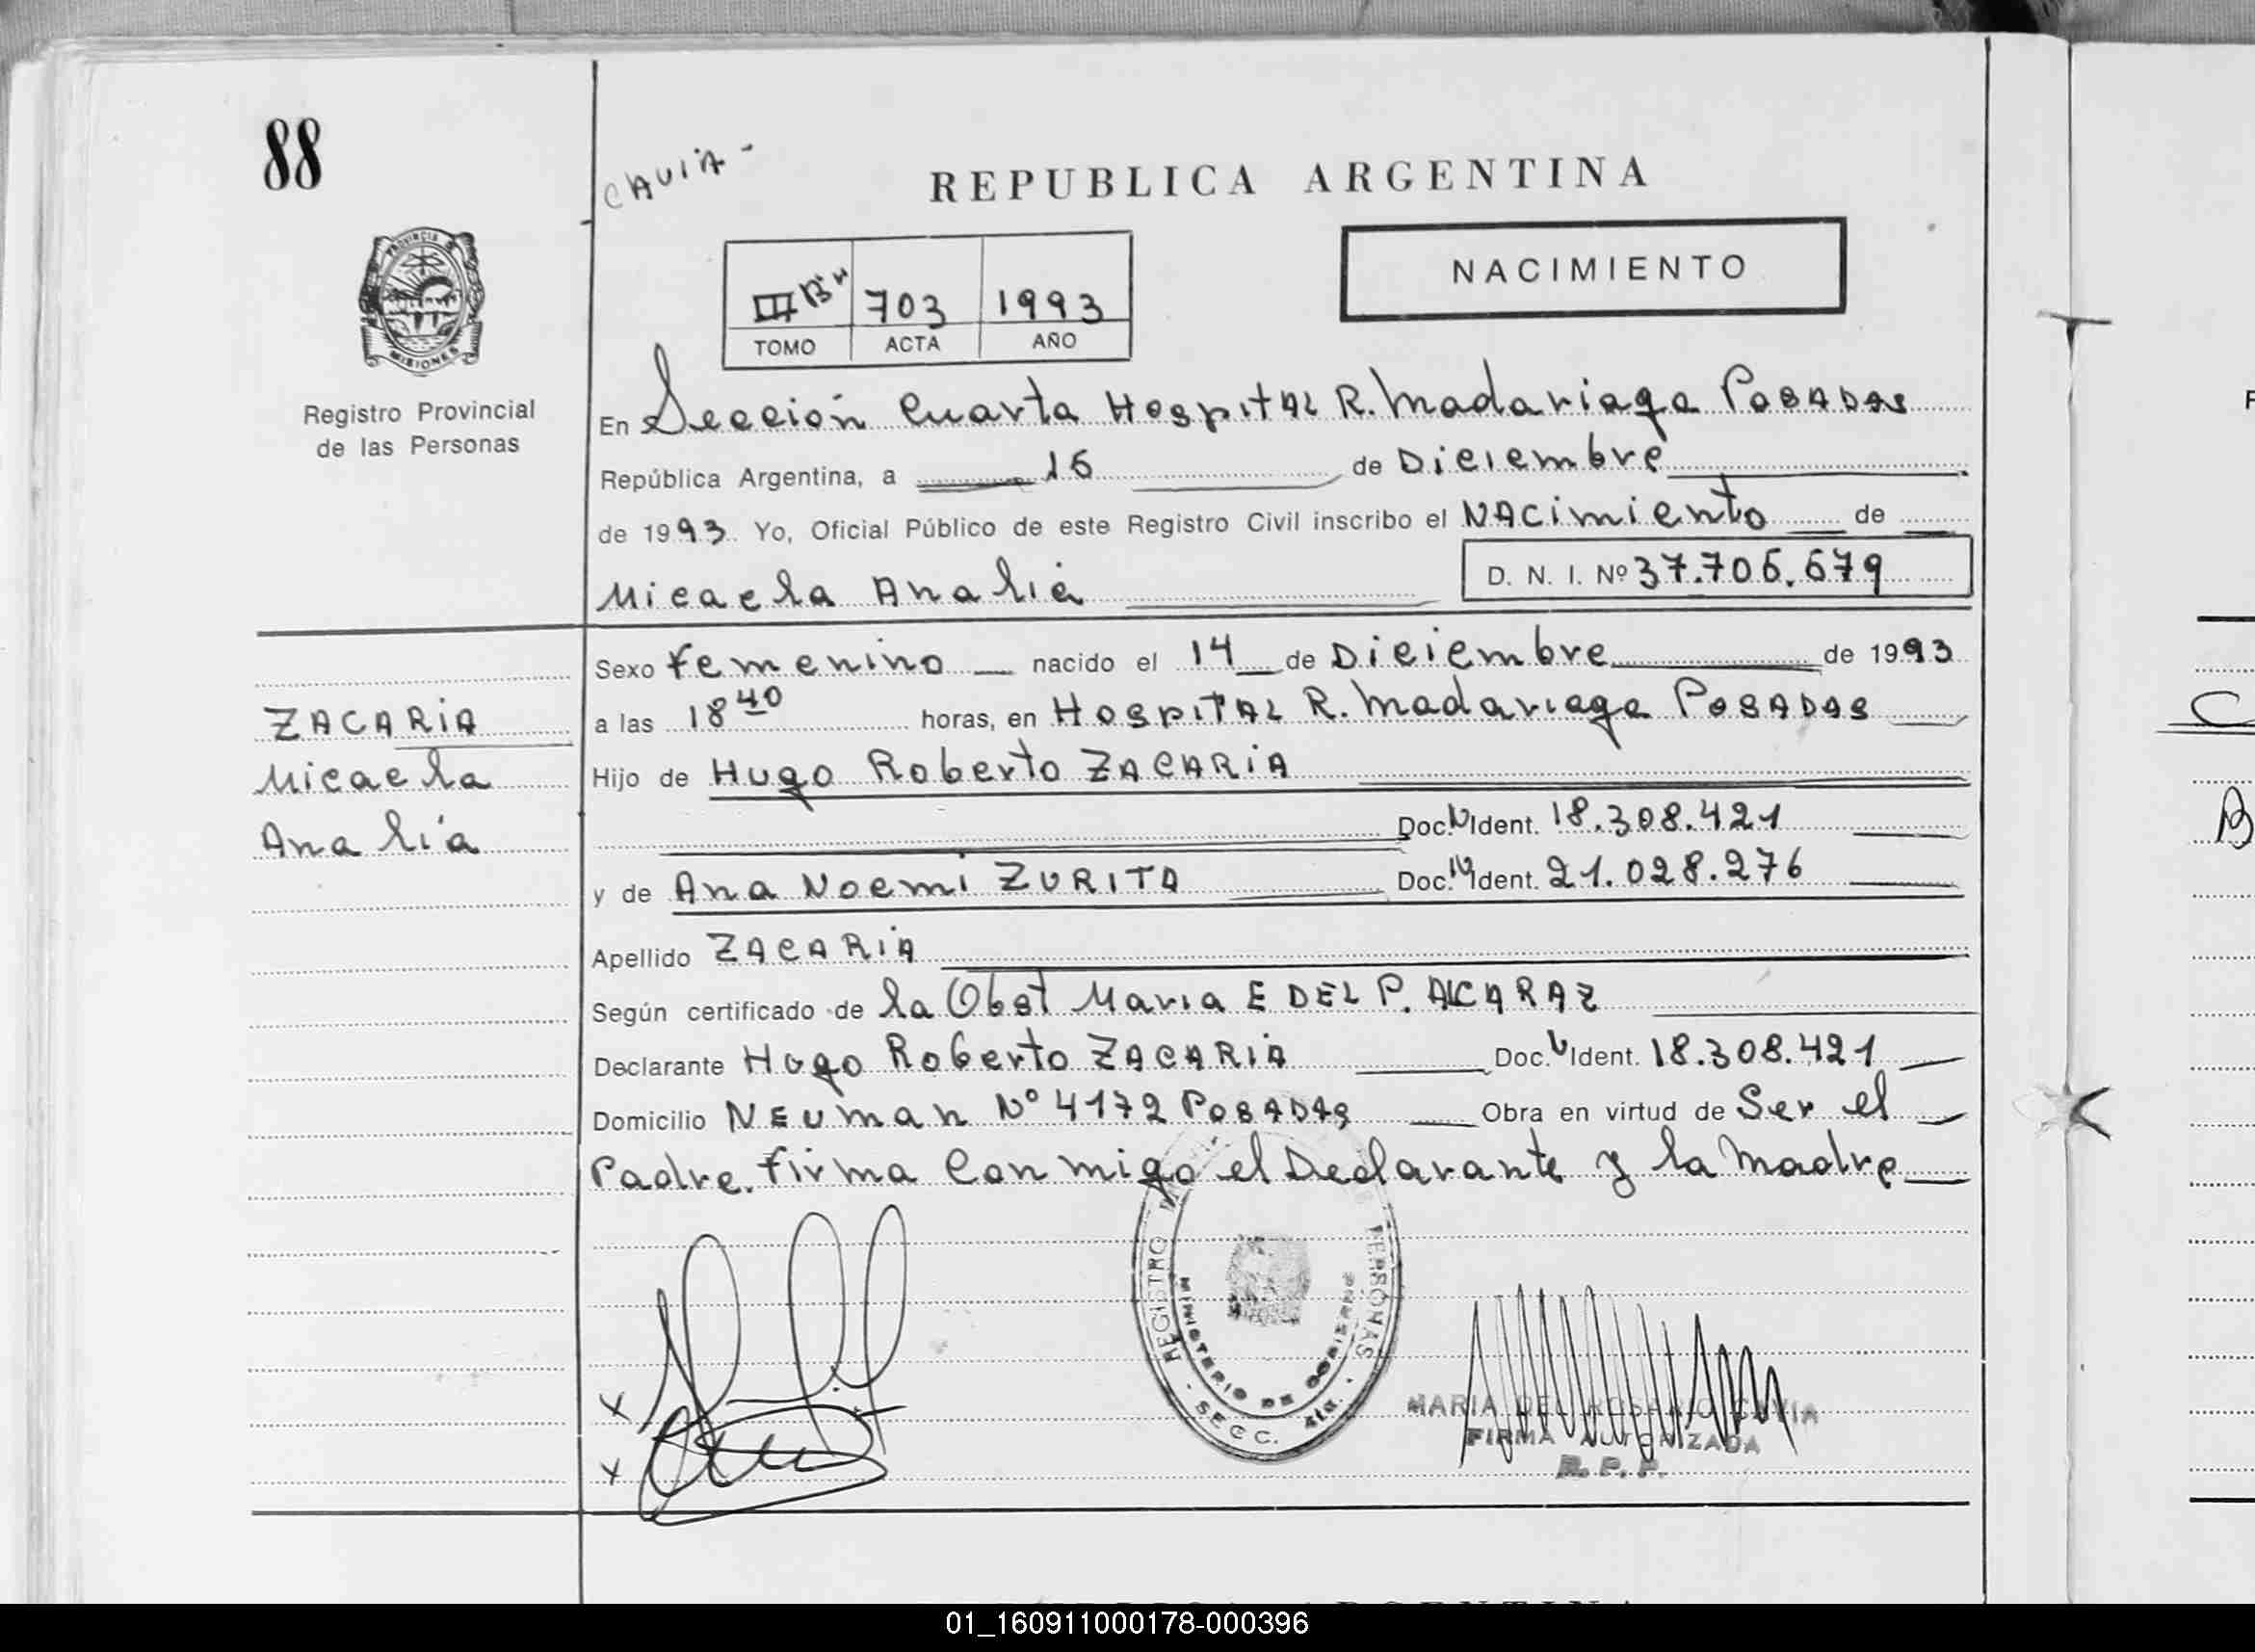 88
CAVIA -
REPUBLICA ARGENTINA
PROVINCIA D
MISIONES
Registro Provincial
de las Personas
III Bis 703 1993
TOMO ACTA AÑO
NACIMIENTO
En Sección Cuarta Hospital R. Madariaga Posadas
República Argentina, a 16 de Diciembre
de 1993. Yo, Oficial Público de este Registro Civil inscribo el Nacimiento de
Micaela Analia
D. N. I. Nº 37.706.679
Sexo Femenino nacido el 14 de Diciembre de 1993
a las 18 40 horas, en Hospital R. Madariaga Posadas
ZACARIA
Micaela
Analía
Hijo de Hugo Roberto ZACARIA
Doc. N Ident. 18.308.421
y de Ana Noemi ZURITA Doc. N Ident. 21.028.276
Apellido ZACARIA
Según certificado de la Obst Maria E DEL P. ALCARAZ
Declarante Hugo Roberto ZACARIA Doc. Ident. 18.308.421
Domicilio NEUMAN Nº 4172 POSADAS Obra en virtud de Ser el
Padre. Firma Conmigo el Declarante y la Madre
x
x
REGISTRO PERSONAS
MINISTERIO DE GOBIERNO
- SECC. 4ta. -
MARIA DEL ROSARIO CAVIA
FIRMA AUTORIZADA
R. P. P.
01_160911000178-000396